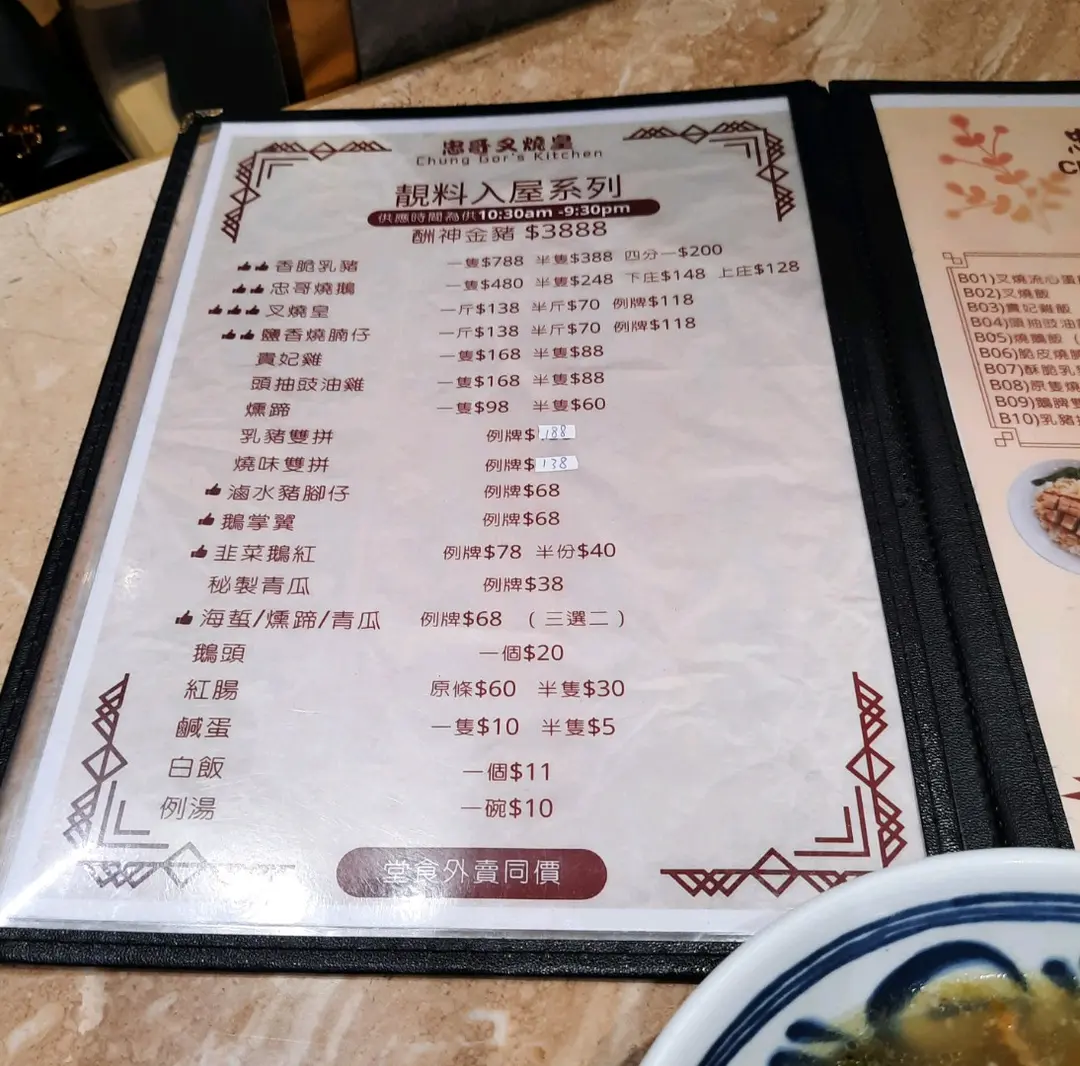 忠哥叉燒皇
Chung Gor's Kitchen
靚料入屋系列
供應時間為供10:30am -9:30pm
酬神金豬 $3888
香脆乳豬 一隻$788 半隻$388 四分一$200
忠哥燒鵝 一隻$480 半隻$248 下庄$148 上庄$128
叉燒皇 一斤$138 半斤$70 例牌$118
鹽香燒腩仔 一斤$138 半斤$70 例牌$118
貴妃雞 一隻$168 半隻$88
頭抽豉油雞 一隻$168 半隻$88
燻蹄 一隻$98 半隻$60
乳豬雙拼 例牌$188
燒味雙拼 例牌$138
滷水豬腳仔 例牌$68
鵝掌翼 例牌$68
韭菜鵝紅 例牌$78 半份$40
秘製青瓜 例牌$38
海蜇/燻蹄/青瓜 例牌$68 （三選二）
鵝頭 一個$20
紅腸 原條$60 半隻$30
鹹蛋 一隻$10 半隻$5
白飯 一個$11
例湯 一碗$10
堂食外賣同價
B01)叉燒流心蛋
B02)叉燒飯
B03)貴妃雞飯
B04)頭抽豉油
B05)燒鵝飯（
B06)脆皮燒腩
B07)酥脆乳
B08)原隻燒
B09)鵝髀雙
B10)乳豬